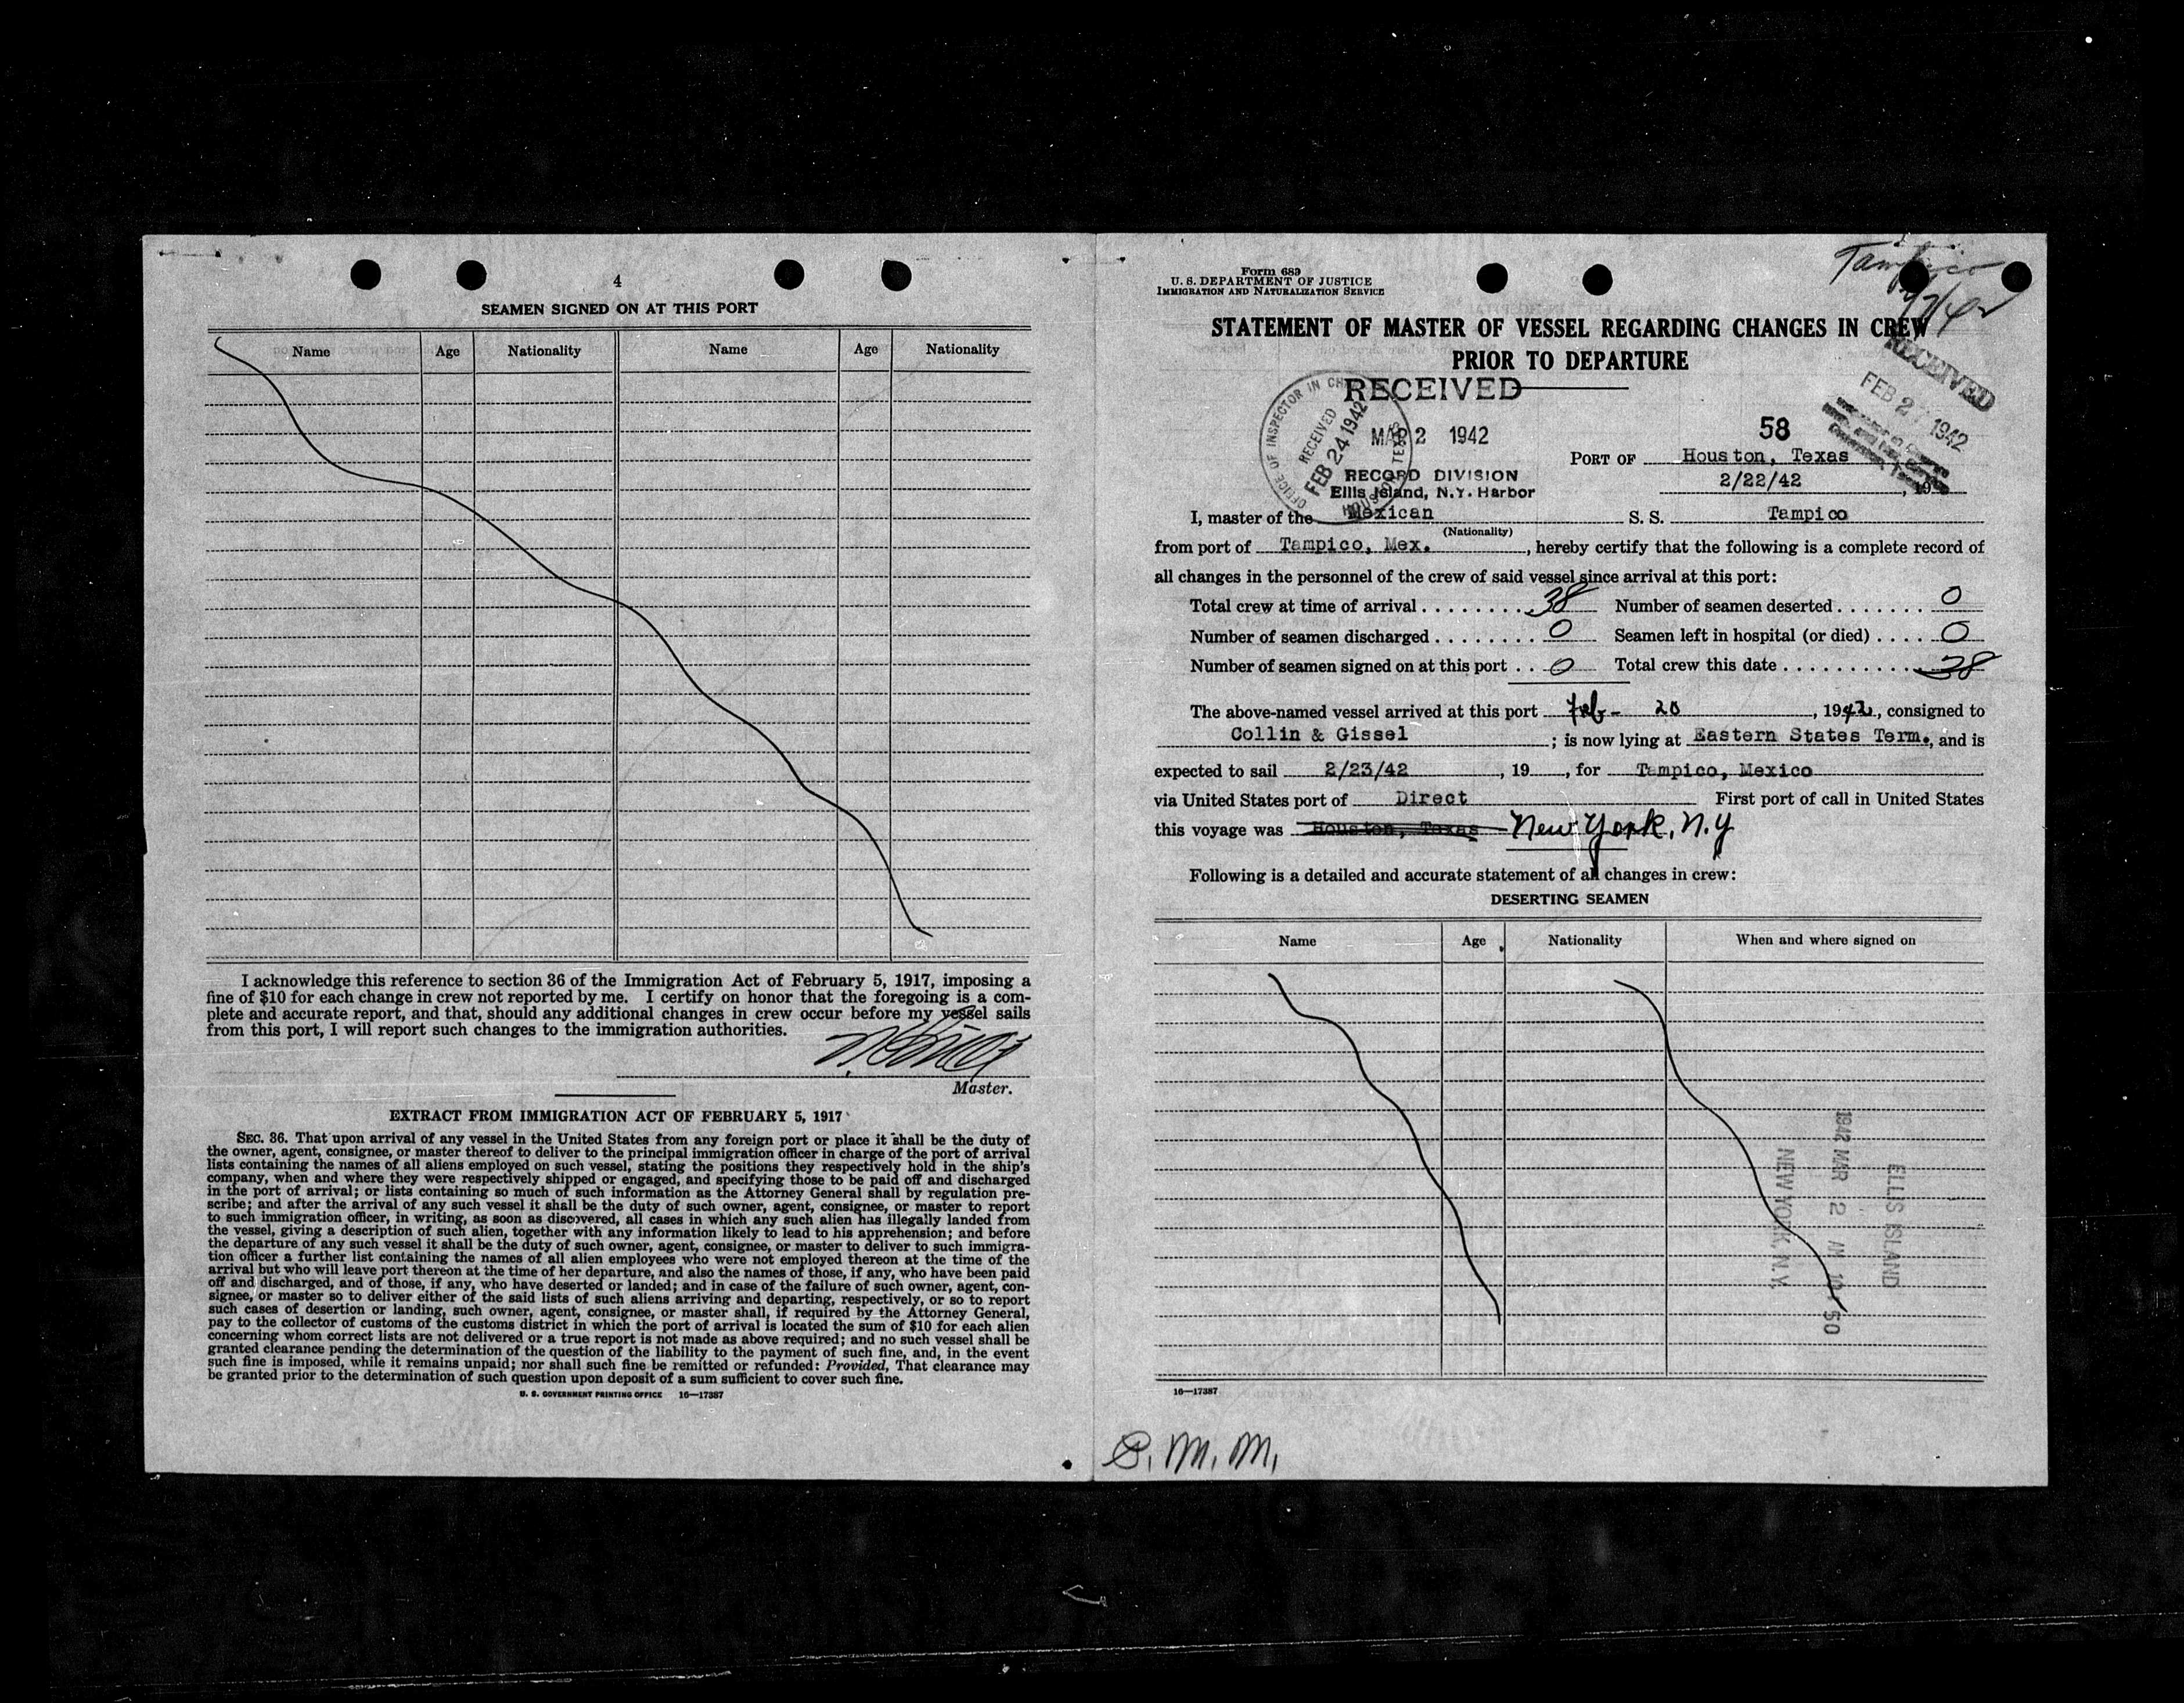 4
SEAMEN SIGNED ON AT THIS PORT
Name Age Nationality Name Age Nationality
I acknowledge this reference to section 36 of the Immigration Act of February 5, 1917, imposing a
fine of $10 for each change in crew not reported by me. I certify on honor that the foregoing is a com-
plete and accurate report, and that, should any additional changes in crew occur before my vessel sails
from this port, I will report such changes to the immigration authorities.
Master.
EXTRACT FROM IMMIGRATION ACT OF FEBRUARY 5, 1917
SEC. 36. That upon arrival of any vessel in the United States from any foreign port or place it shall be the duty of
the owner, agent, consignee, or master thereof to deliver to the principal immigration officer in charge of the port of arrival
lists containing the names of all aliens employed on such vessel, stating the positions they respectively hold in the ship's
company, when and where they were respectively shipped or engaged, and specifying those to be paid off and discharged
in the port of arrival; or lists containing so much of such information as the Attorney General shall by regulation pre-
scribe; and after the arrival of any such vessel it shall be the duty of such owner, agent, consignee, or master to report
to such immigration officer, in writing, as soon as discovered, all cases in which any such alien has illegally landed from
the vessel, giving a description of such alien, together with any information likely to lead to his apprehension; and before
the departure of any such vessel it shall be the duty of such owner, agent, consignee, or master to deliver to such immigra-
tion officer a further list containing the names of all alien employees who were not employed thereon at the time of the
arrival but who will leave port thereon at the time of her departure, and also the names of those, if any, who have been paid
off and discharged, and of those, if any, who have deserted or landed; and in case of the failure of such owner, agent, con-
signee, or master so to deliver either of the said lists of such aliens arriving and departing, respectively, or so to report
such cases of desertion or landing, such owner, agent, consignee, or master shall, if required by the Attorney General,
pay to the collector of customs of the customs district in which the port of arrival is located the sum of $10 for each alien
concerning whom correct lists are not delivered or a true report is not made as above required; and no such vessel shall be
granted clearance pending the determination of the question of the liability to the payment of such fine, and, in the event
such fine is imposed, while it remains unpaid; nor shall such fine be remitted or refunded: Provided, That clearance may
be granted prior to the determination of such question upon deposit of a sum sufficient to cover such fine.
U. S. GOVERNMENT PRINTING OFFICE 16—17387
Tampico
Form 689
U. S. DEPARTMENT OF JUSTICE
IMMIGRATION AND NATURALIZATION SERVICE
STATEMENT OF MASTER OF VESSEL REGARDING CHANGES IN CREW
PRIOR TO DEPARTURE
RECEIVED
MAR 2 1942
RECORD DIVISION
Ellis Island, N.Y. Harbor
OFFICE OF INSPECTOR IN CH
RECEIVED
FEB 24 1942
HOUSTON TEXAS
RECEIVED
FEB 27 1942
58
PORT OF Houston, Texas
2/22/42, 19
I, master of the Mexican S. S. Tampico
(Nationality)
from port of Tampico, Mex., hereby certify that the following is a complete record of
all changes in the personnel of the crew of said vessel since arrival at this port:
Total crew at time of arrival ........ 38 Number of seamen deserted ....... 0
Number of seamen discharged ........ 0 Seamen left in hospital (or died) .... 0
Number of seamen signed on at this port .. 0 Total crew this date ........... 38
The above-named vessel arrived at this port Feb- 20, 1942, consigned to
Collin & Gissel; is now lying at Eastern States Term., and is
expected to sail 2/23/42, 19, for Tampico, Mexico
via United States port of Direct First port of call in United States
this voyage was Houston, Texas New York, N.Y
Following is a detailed and accurate statement of all changes in crew:
DESERTING SEAMEN
Name Age Nationality When and where signed on
ELLIS ISLAND
1942 MAR 2 AM 10 50
NEW YORK, N.Y.
16—17387
S. M. M.